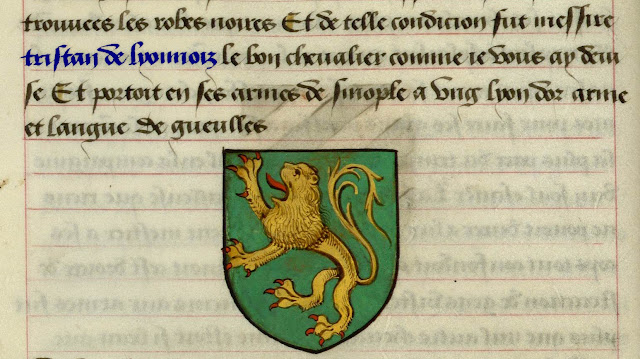 trouvees les robes noires Et de telle condicion fut messire
tristan de lyonnois le bon chevalier comme ie vous ay devi
se Et portoit en ses armes de sinople a ung lyon dor arme
et langue de gueulles